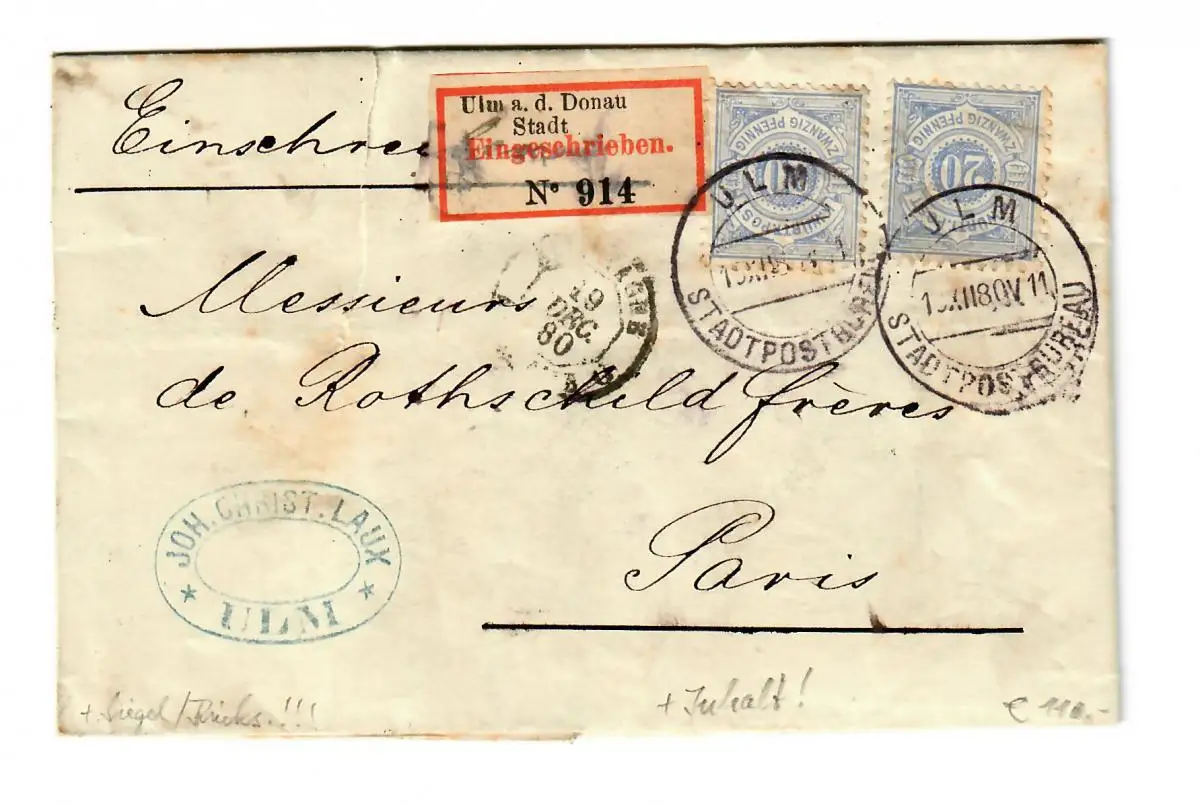 Einschrei
Ulm a. d. Donau
Stadt
Eingeschrieben.
Nº 914
ZWANZIG PFENNIG
ZWANZIG PFENNIG
20
ULM
STADTPOSTBUREAU
ULM
STADTPOSTBUREAU
19
DEC.
80
Messieurs
de Rothschild frères
Paris
JOH. CHRIST. LAUX
* ULM *
+ Siegel / Rücks.!!!
+ Inhalt!
€ 110.-